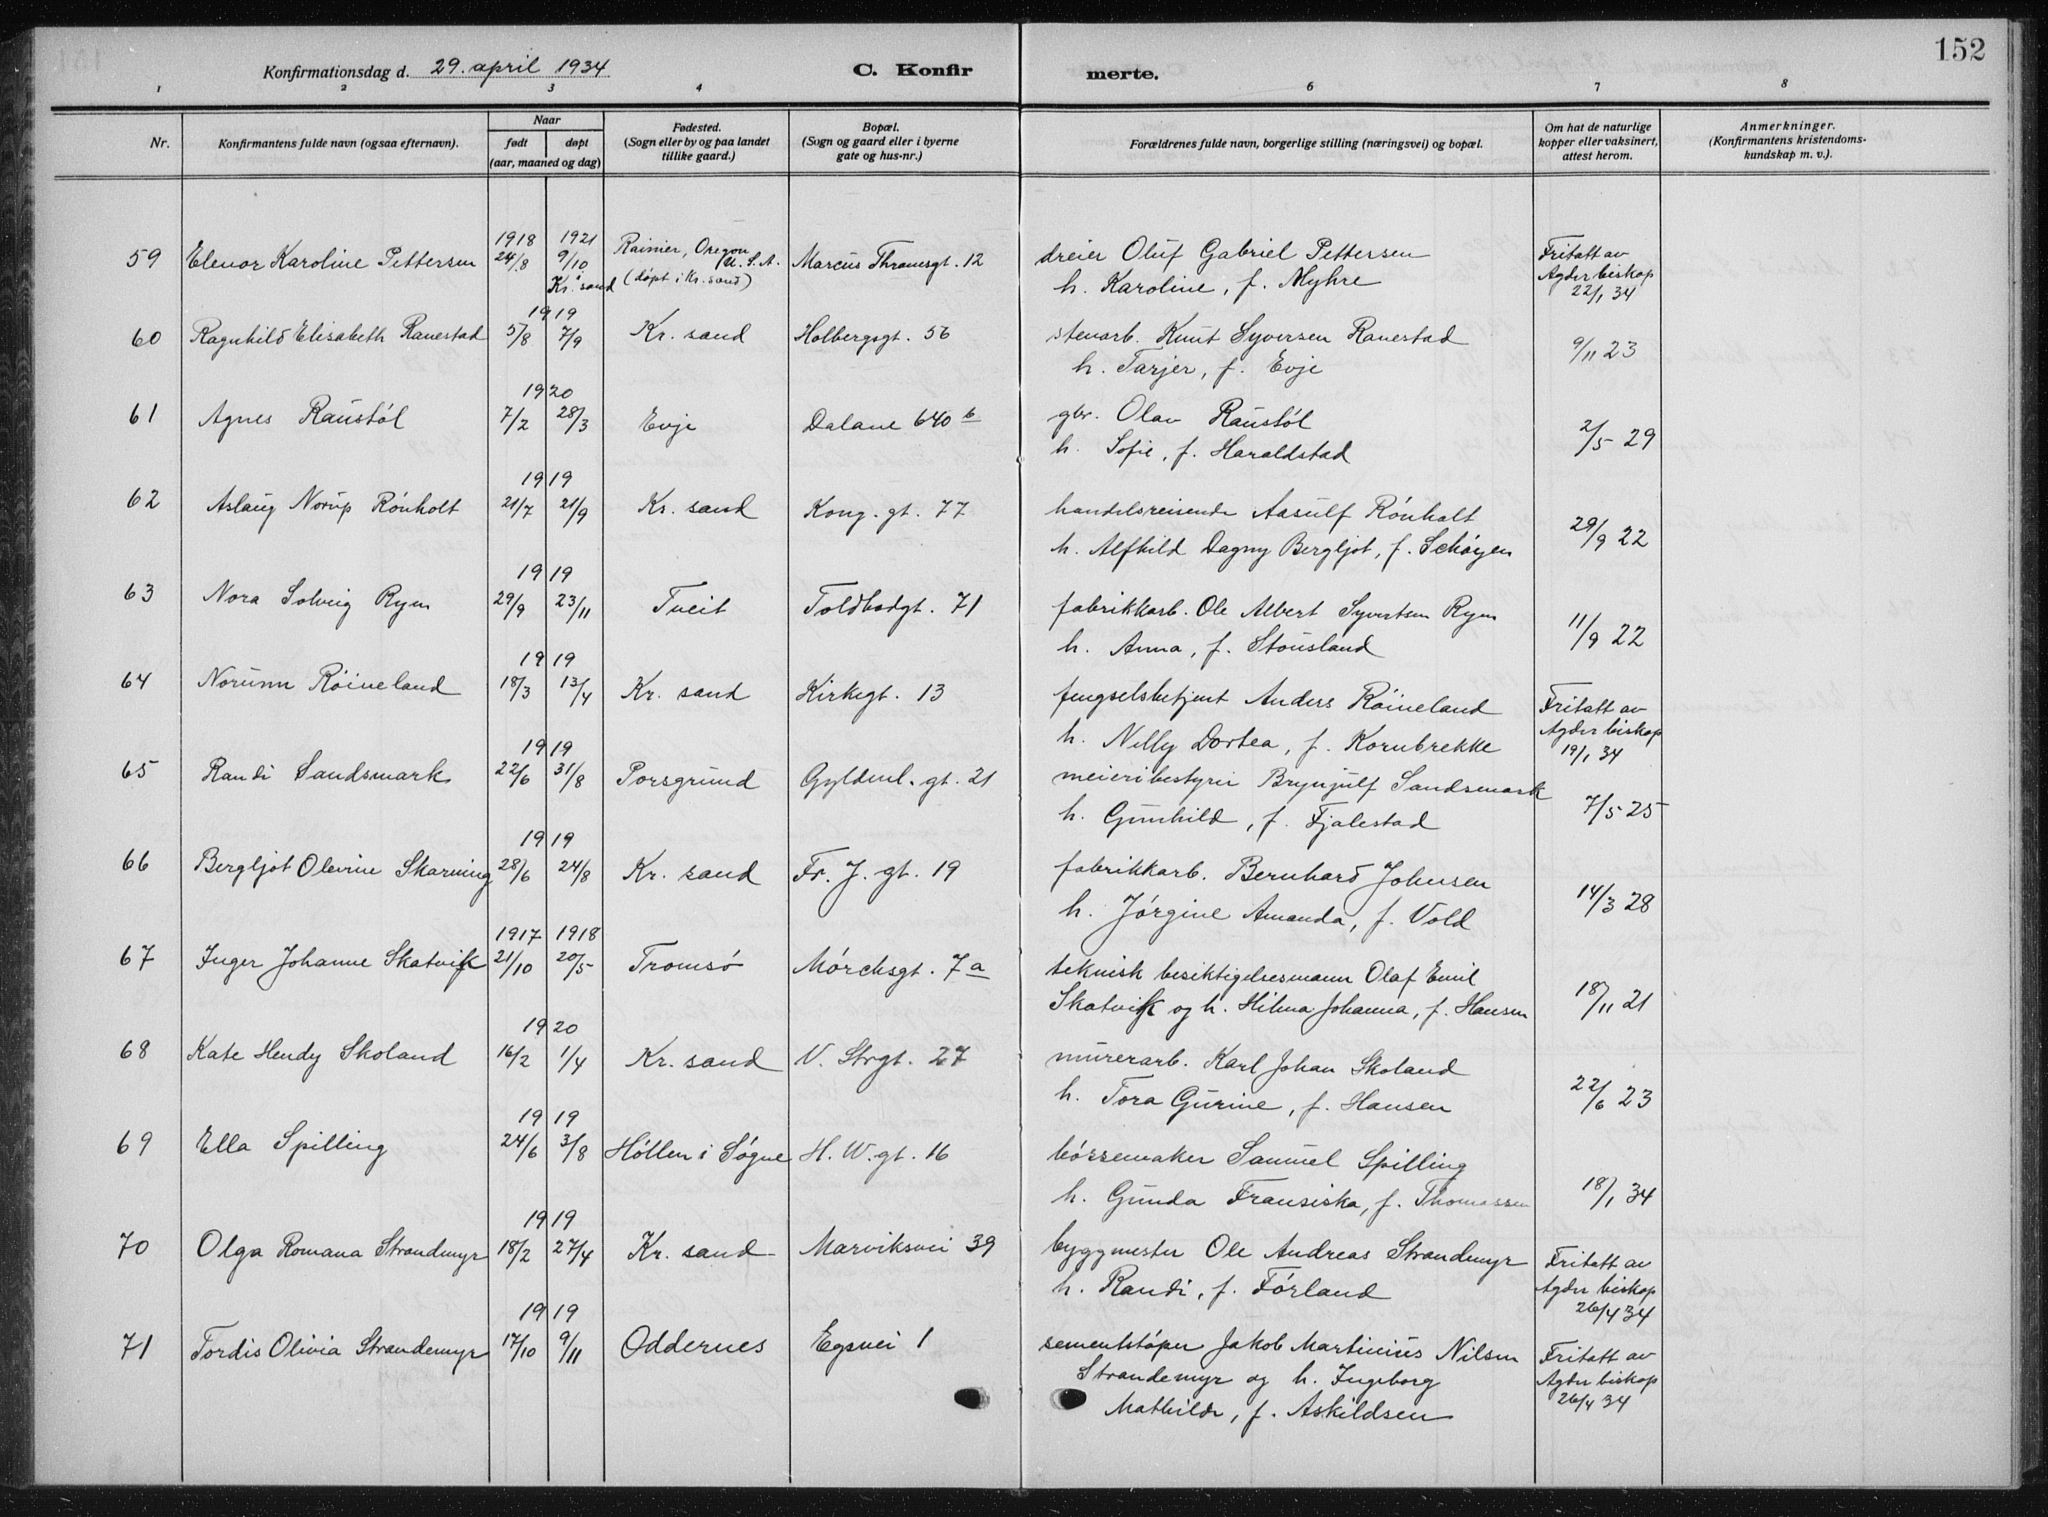 152
Konfirmationsdag d. 29. april 1934 C. Konfir merte.
1 2 3 4 6 7 8
Nr. Konfirmantens fulde navn (ogsaa efternavn). Naar født døpt (aar, maaned og dag) Fødested. (Sogn eller by og paa landet tillike gaard.) Bopæl. (Sogn og gaard eller i byerne gate og hus-nr.) Forældrenes fulde navn, borgerlige stilling (næringsvei) og bopæl. Om hat de naturlige kopper eller vaksinert, attest herom. Anmerkninger. (Konfirmantens kristendoms-kundskap m. v.).
1918 1921 Rainier, Oregon Fritatt av
59 Elenor Karoline Pettersen 24/8 9/10 U.S.A. Marcus Thranesgt. 12 dreier Oluf Gabriel Pettersen Agder biskop
Kr.sand (døpt i Kr.sand) h. Karoline, f. Myhre 22/1 34
1919
60 Ragnhild Elisabeth Ranestad 5/8 7/9 Kr. sand Holbergsgt. 56 stenarb. Knut Syversen Ranestad 9/11 23
h. Tarjer, f. Evje
1920
61 Agnes Raustøl 7/2 28/3 Evje Dalane 640 b gbr. Olav Raustøl 2/5 29
h. Sofie, f. Haraldstad
1919
62 Aslaug Norup Rönholt 21/7 21/9 Kr. sand Kong. gt. 77 handelsreisende Aasulf Rönholt 29/9 22
h. Alfhild Dagny Bergljot, f. Schøyen
1919
63 Nora Solveig Ryen 29/9 23/11 Tveit Toldbodgt. 71 fabrikkarb. Ole Albert Syvertsen Ryen 11/9 22
h. Anna, f. Stousland
1919
64 Norunn Röineland 18/3 13/4 Kr. sand Kirkegt. 13 fengselsbetjent Anders Röineland Fritatt av
h. Nelly Dortea, f. Kornbrekke Agder biskop 19/1 34
1919
65 Randi Sandsmark 22/6 31/8 Porsgrund Gyldenl. gt. 21 meieribestyrer Brynjulf Sandsmark 7/5 25
h. Gunhild, f. Fjalestad
1919
66 Bergljot Olevine Skarning 28/6 24/8 Kr. sand Fr. J. gt. 19 fabrikkarb. Bernhard Johnsen 14/3 28
h. Jørgine Amanda, f. Vold
1917 1918
67 Inger Johanne Skatvik 21/10 20/5 Tromsø Mørchsgt. 7a teknisk besiktigelsesmann Olaf Emil 18/11 21
Skatvik og h. Hilma Johanna, f. Hansen
1920
68 Kate Hendy Skoland 16/2 1/4 Kr. sand V. Strgt. 27 murerarb. Karl Johan Skoland 22/6 23
h. Tora Gurine, f. Hansen
1919
69 Ella Spilling 24/6 3/8 Høllen i Søgne H. W. gt. 16 børsemaker Samuel Spilling 18/1 34
h. Gunda Fransiska, f. Thomassen
1919
70 Olga Romana Strandemyr 18/2 27/4 Kr. sand Marviksvei 39 byggmester Ole Andreas Strandemyr Fritatt av
h. Randi, f. Førland Agder biskop 26/4 34
1919
71 Tordis Olivia Strandemyr 17/10 9/11 Oddernes Egsvei 1 sementstøper Jakob Martinius Nilsen Fritatt av
Strandemyr og h. Ingeborg Agder biskop
Mathilde, f. Askildsen 26/4 34